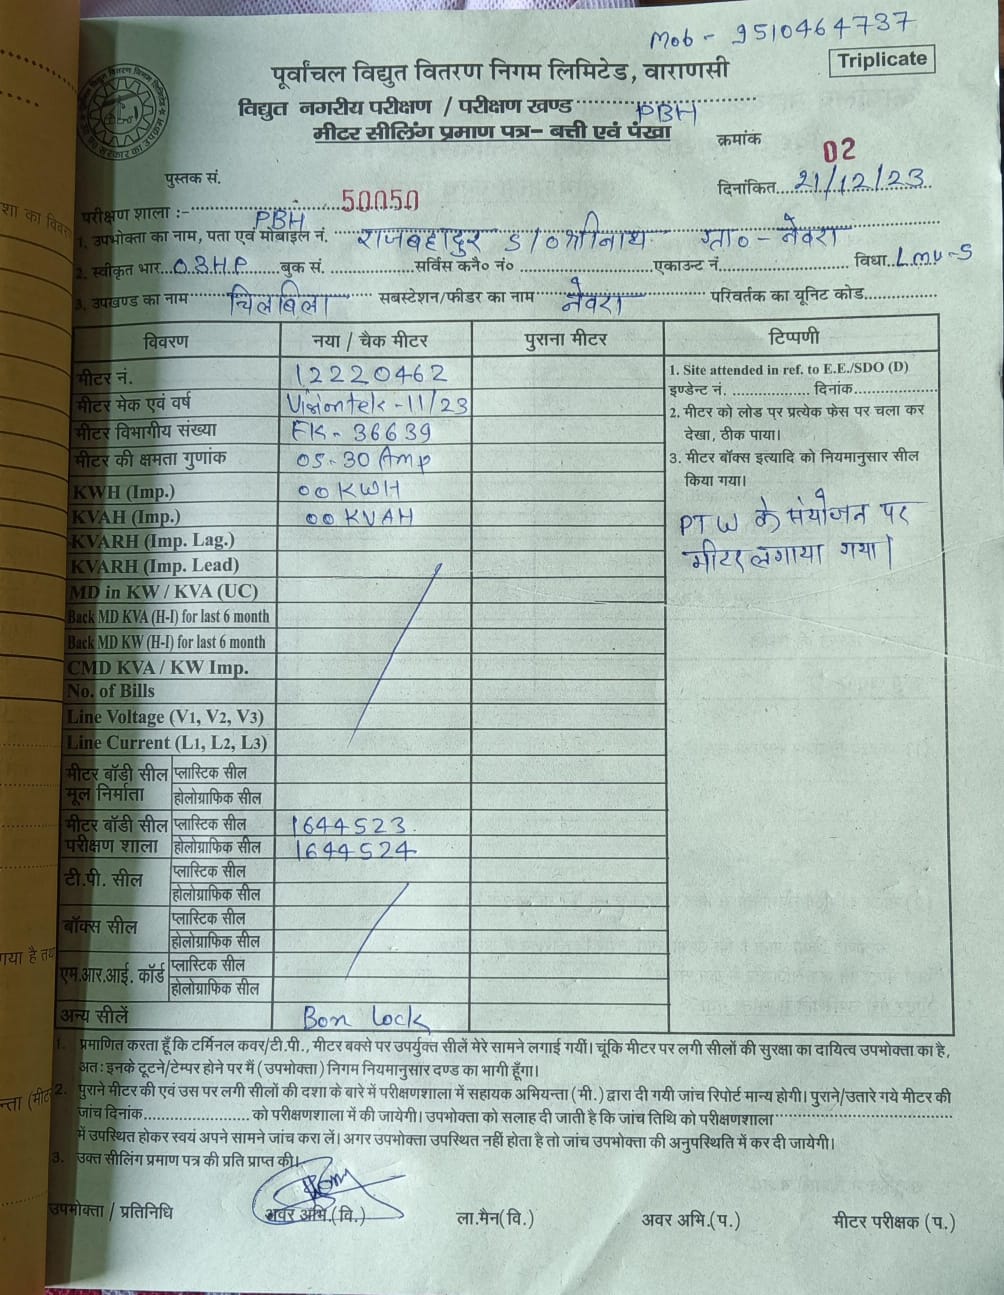 Mob - 9510464737
Triplicate
पूर्वांचल विद्युत वितरण निगम लिमिटेड, वाराणसी
विद्युत नगरीय परीक्षण / परीक्षण खण्ड PBH
मीटर सीलिंग प्रमाण पत्र– बत्ती एवं पंखा
क्रमांक 02
पुस्तक सं. 50050
दिनांकित 21/12/23
परीक्षण शाला :- PBH
1. उपभोक्ता का नाम, पता एवं मोबाइल नं. राजबहादुर S/O श्रीनाथ ग्रा० - नेवरा
2. स्वीकृत भार 03 H.P. बुक सं. सर्विस कनै० नं० एकाउन्ट नं. विधा L.m.v-5
3. उपखण्ड का नाम चिलबिला सबस्टेशन/फीडर का नाम नेवरा परिवर्तक का यूनिट कोड
विवरण नया / चैक मीटर पुराना मीटर टिप्पणी
मीटर नं. 12220462
मीटर मेक एवं वर्ष Visiontek - 11/23
मीटर विभागीय संख्या EK - 36639
मीटर की क्षमता गुणांक 05-30 Amp
KWH (Imp.) 00 KWH
KVAH (Imp.) 00 KVAH
KVARH (Imp. Lag.)
KVARH (Imp. Lead)
MD in KW / KVA (UC)
Back MD KVA (H-I) for last 6 month
Back MD KW (H-I) for last 6 month
CMD KVA / KW Imp.
No. of Bills
Line Voltage (V1, V2, V3)
Line Current (L1, L2, L3)
मीटर बॉडी सील प्लास्टिक सील
मूल निर्माता होलोग्राफिक सील
मीटर बॉडी सील प्लास्टिक सील 1644523
परीक्षण शाला होलोग्राफिक सील 1644524
टी.पी. सील प्लास्टिक सील
होलोग्राफिक सील
बॉक्स सील प्लास्टिक सील
होलोग्राफिक सील
एम.आर.आई. कॉर्ड प्लास्टिक सील
होलोग्राफिक सील
अन्य सीलें Bon lock
1. Site attended in ref. to E.E./SDO (D)
इण्डेन्ट नं. दिनांक
2. मीटर को लोड पर प्रत्येक फेस पर चला कर
देखा, ठीक पाया।
3. मीटर बॉक्स इत्यादि को नियमानुसार सील
किया गया।
PTW के संयोजन पर
मीटर लगाया गया।
1. प्रमाणित करता हूँ कि टर्मिनल कवर/टी.पी., मीटर बक्से पर उपर्युक्त सीलें मेरे सामने लगाई गयीं। चूंकि मीटर पर लगी सीलों की सुरक्षा का दायित्व उपभोक्ता का है,
अत: इनके टूटने/टेम्पर होने पर मैं (उपभोक्ता) निगम नियमानुसार दण्ड का भागी हूँगा।
2. पुराने मीटर की एवं उस पर लगी सीलों की दशा के बारे में परीक्षणशाला में सहायक अभियन्ता (मी.) द्वारा दी गयी जांच रिपोर्ट मान्य होगी। पुराने/उतारे गये मीटर की
जांच दिनांक को परीक्षणशाला में की जायेगी। उपभोक्ता को सलाह दी जाती है कि जांच तिथि को परीक्षणशाला
में उपस्थित होकर स्वयं अपने सामने जांच करा लें। अगर उपभोक्ता उपस्थित नहीं होता है तो जांच उपभोक्ता की अनुपस्थिति में कर दी जायेगी।
3. उक्त सीलिंग प्रमाण पत्र की प्रति प्राप्त की।
उपभोक्ता / प्रतिनिधि अवर अभि.(वि.) ला.मैन(वि.) अवर अभि.(प.) मीटर परीक्षक (प.)